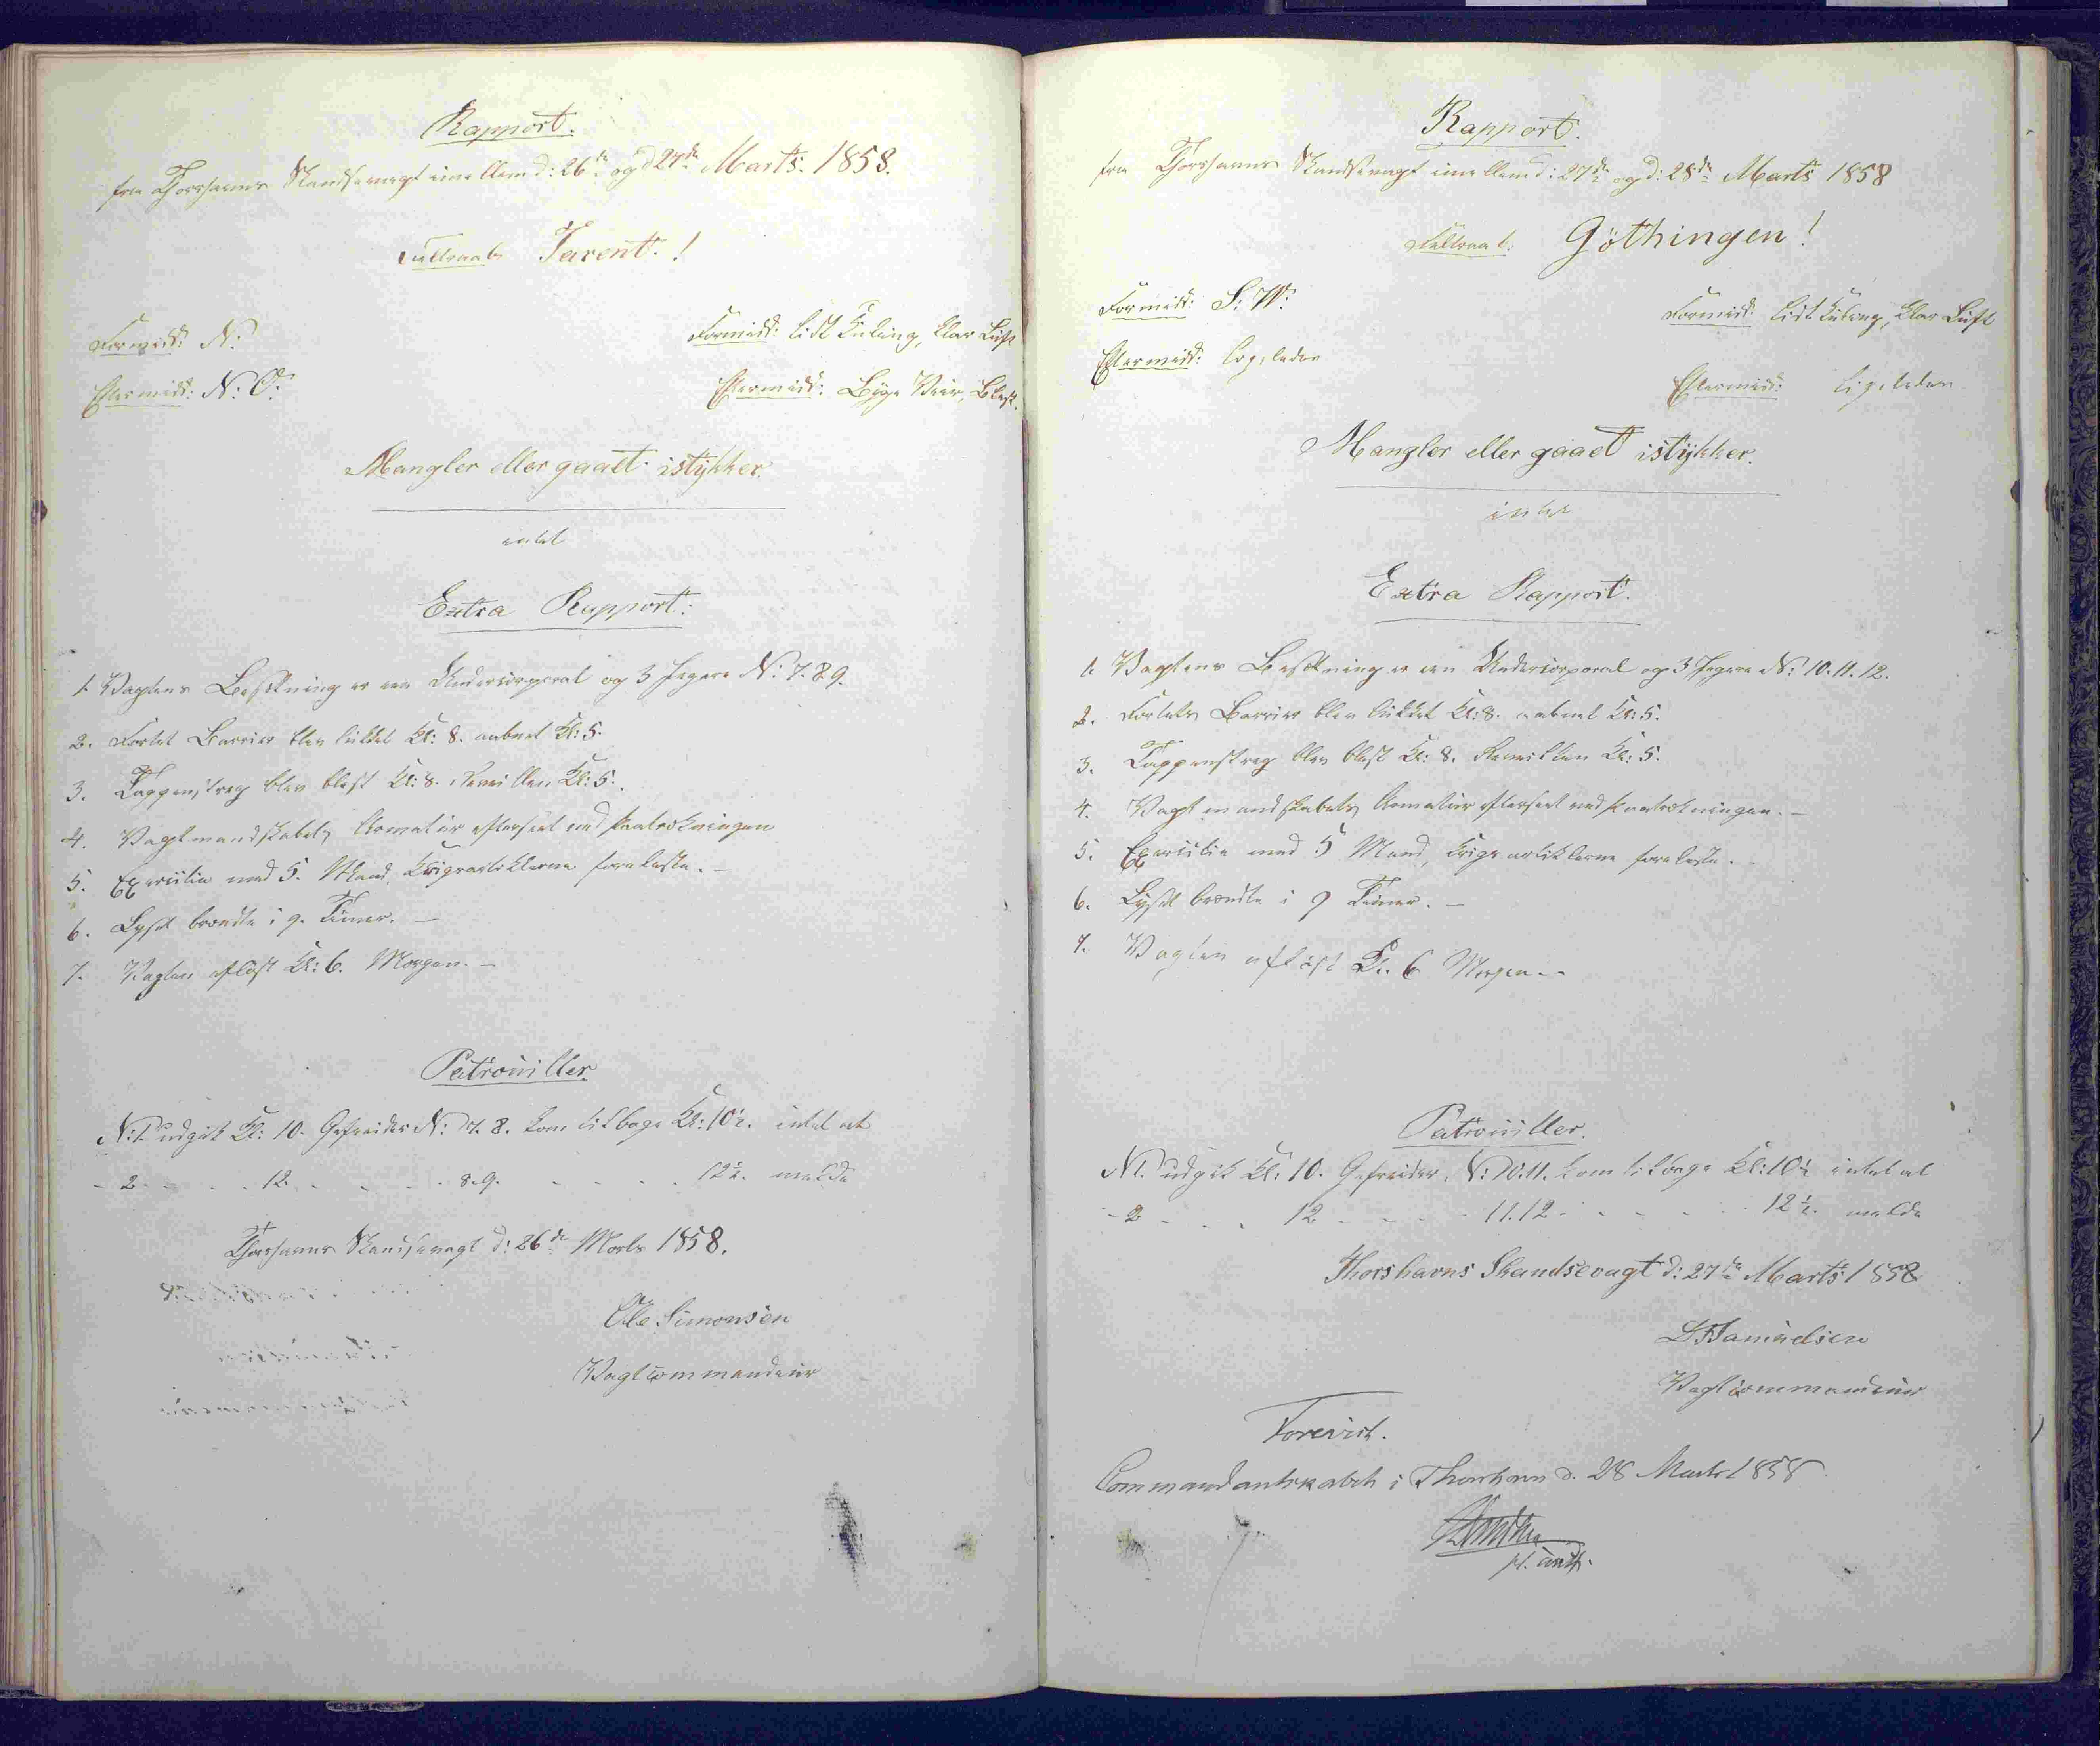 Rapport.
fra Thorshavns Skandsevagt imellem d: 26de og d 27de Marts. 1858.
Feltraab Tarent.!
Formidd: N:
Formidd: lidt Kuling, klar Luft
Eftermidd: N: O:
Eftermidd: Byge Veir, Blæst.
Mangler eller gaaet istykker.
intet
Extra Rapport:
1. Vagtens Besætning er een Undercorporal og 3 Jægere N: 7.8.9.
2. Fortets Barrier blev lukket Kl: 8. aabnet Kl: 5.
3. Tappenstreg blev blæst Kl: 8. Reveillen Kl: 5.
4. Vagtmandskabets Armatur efterseet ved Paatrækningen
5. Exercitie med 5. Mand, Krigsartiklerne forelæste. –
6. Lyset brændte i 9. Timer. –
7. Vagten afløst Kl: 6. Morgen. –
Patrouiller
N: 1. udgik Kl: 10. Gefreider N: 7. 8. kom tilbage Kl: 10½. intet at
- 2 - - - 12. - - - - 8.9. - - - - - 12½. melde
Thorshavns Skandsevagt d: 26de Marts 1858.
Ole Simonsen
Vagtcommandeur
Rapport.
fra Thorshavns Skandsevagt imellem d: 27de og d: 28de Marts 1858
Feltraab: Göthingen!
Formidd: S: W:
Formidd: lidt Kuling, klar Luft
Eftermidd: ligeledes
Eftermidd: ligeledes
Mangler eller gaaet istykker.
intet
Extra Rapport.
1. Vagtens Besætning er een Undercorporal og 3 Jægere N: 10. 11. 12.
2. Fortets Barrier blev lukket Kl: 8. aabnet Kl: 5.
3. Tappenstreg blev blæst Kl: 8. Reveillen Kl: 5.
4. Vagtmandskabets Armatur efterseet ved Paatrækningen. –
5. Exercitie med 5 Mand, Krigsartiklerne foreleste. –
6. Lyset brændte i 9 Timer. –
7. Vagten afløst Kl. 6 Morgen –
Patrouiller.
N1. udgik Kl: 10. Gefreider, N: 10.11. kom tilbage Kl: 10½ intet at
- 2 - - - 12 - - - - 11.12 - - - - - 12½. melde
Thorshavns Skandsevagt d: 27de Marts 1858
Samuelsen
Vagtcommandeur
Foreviist.
Commandantskabet i Thorshavn d. 28 Marts 1858